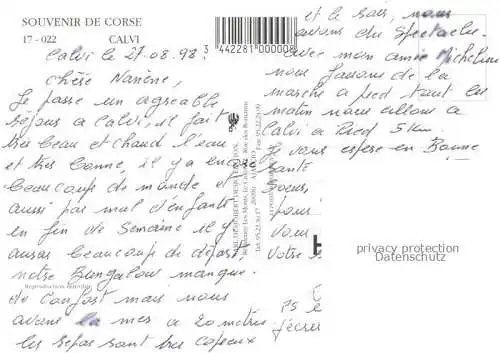 SOUVENIR DE CORSE
17 - 022 CALVI
3 442281 000008
Calvi le 27.08.98.
Chère
Je passe un agréable
sejous a calvi, il fait
très beau et chaud l'eau
et très bonne, il y a encore
beaucoup de monde et
aussi pas mal d'enfants
en fin de semaine il y
auras beaucoup de départ,
notre Bungalow manque
de confort mais nous
avons la mer a 20 mètres
les repas sont très copieux
et le soir, nous
avons du spectacle.
avec mon amie Micheline
nous faisons de la
marche a pied tout les
matin nous allons a
Calvi a Pied 5 km
vous espere en Bonne
santé
pour
Vous
Votre
PS
privacy protection
Datenschutz